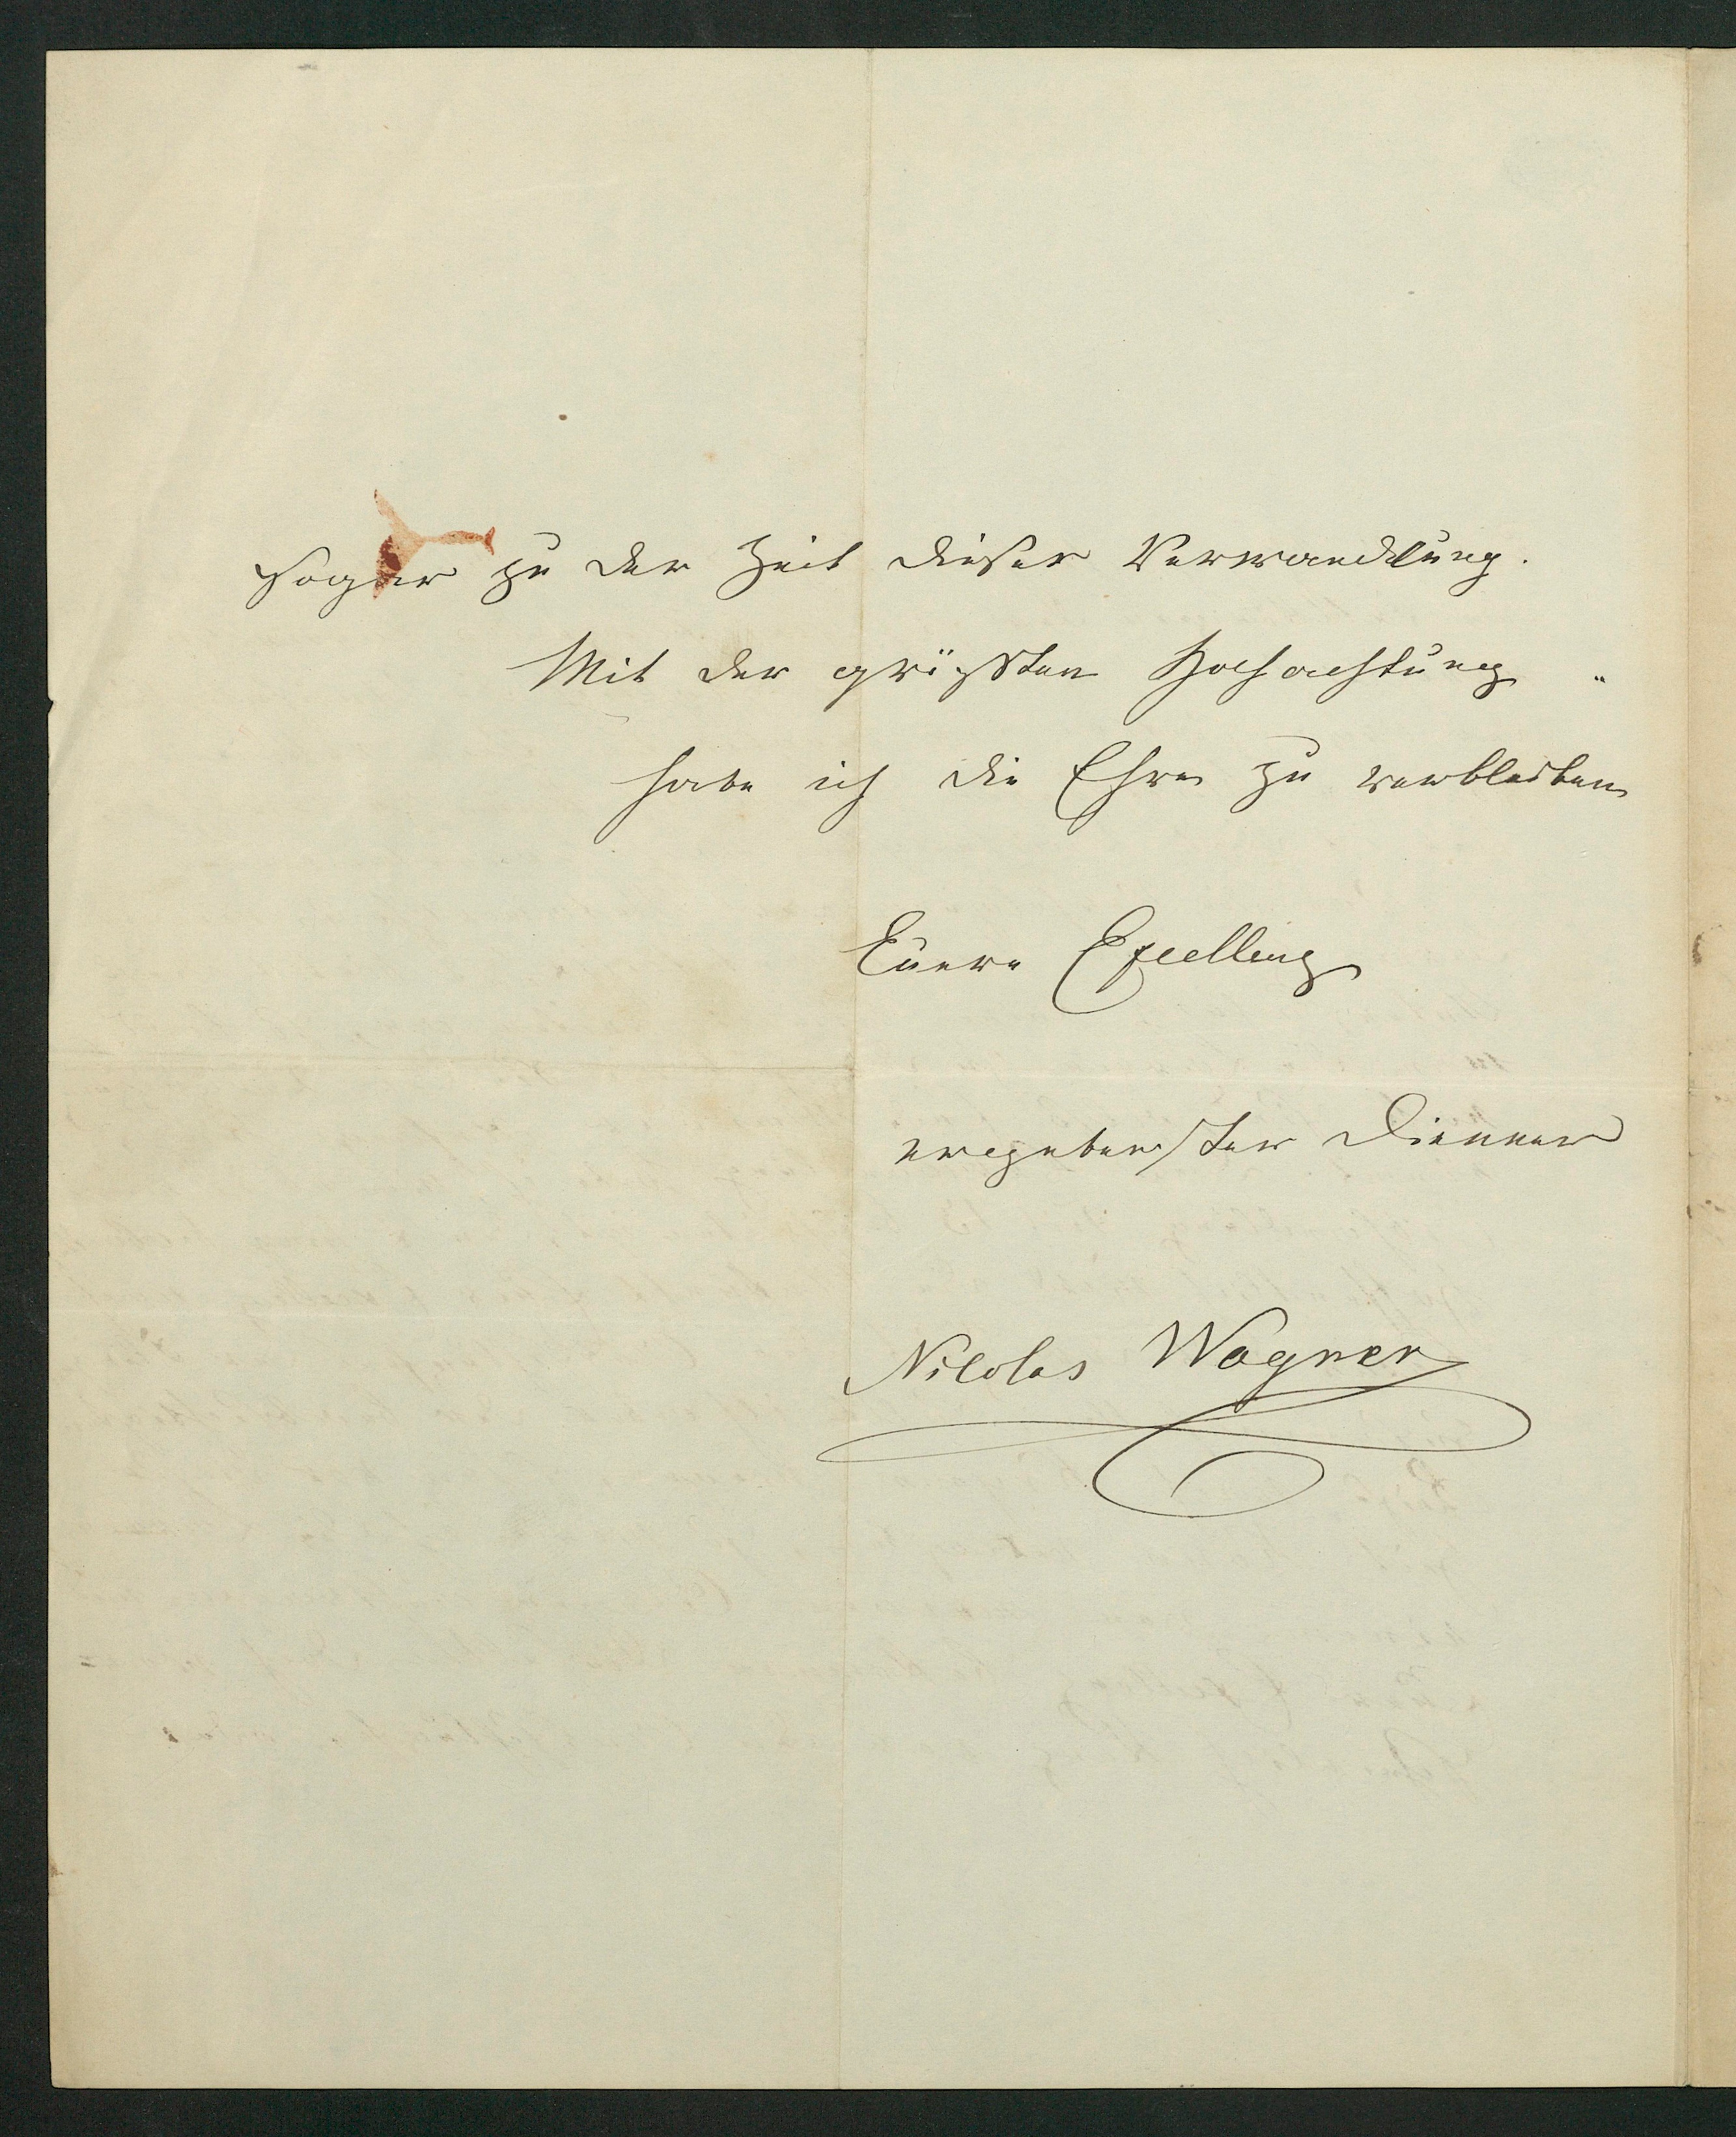 sogar zu der Zeit dieser Verwandlung.
Mit der größten Hochachtung
habe ich die Ehre zu verbleiben
Euere Excellenz
ergebenster Dienner
Nicolas Wagner